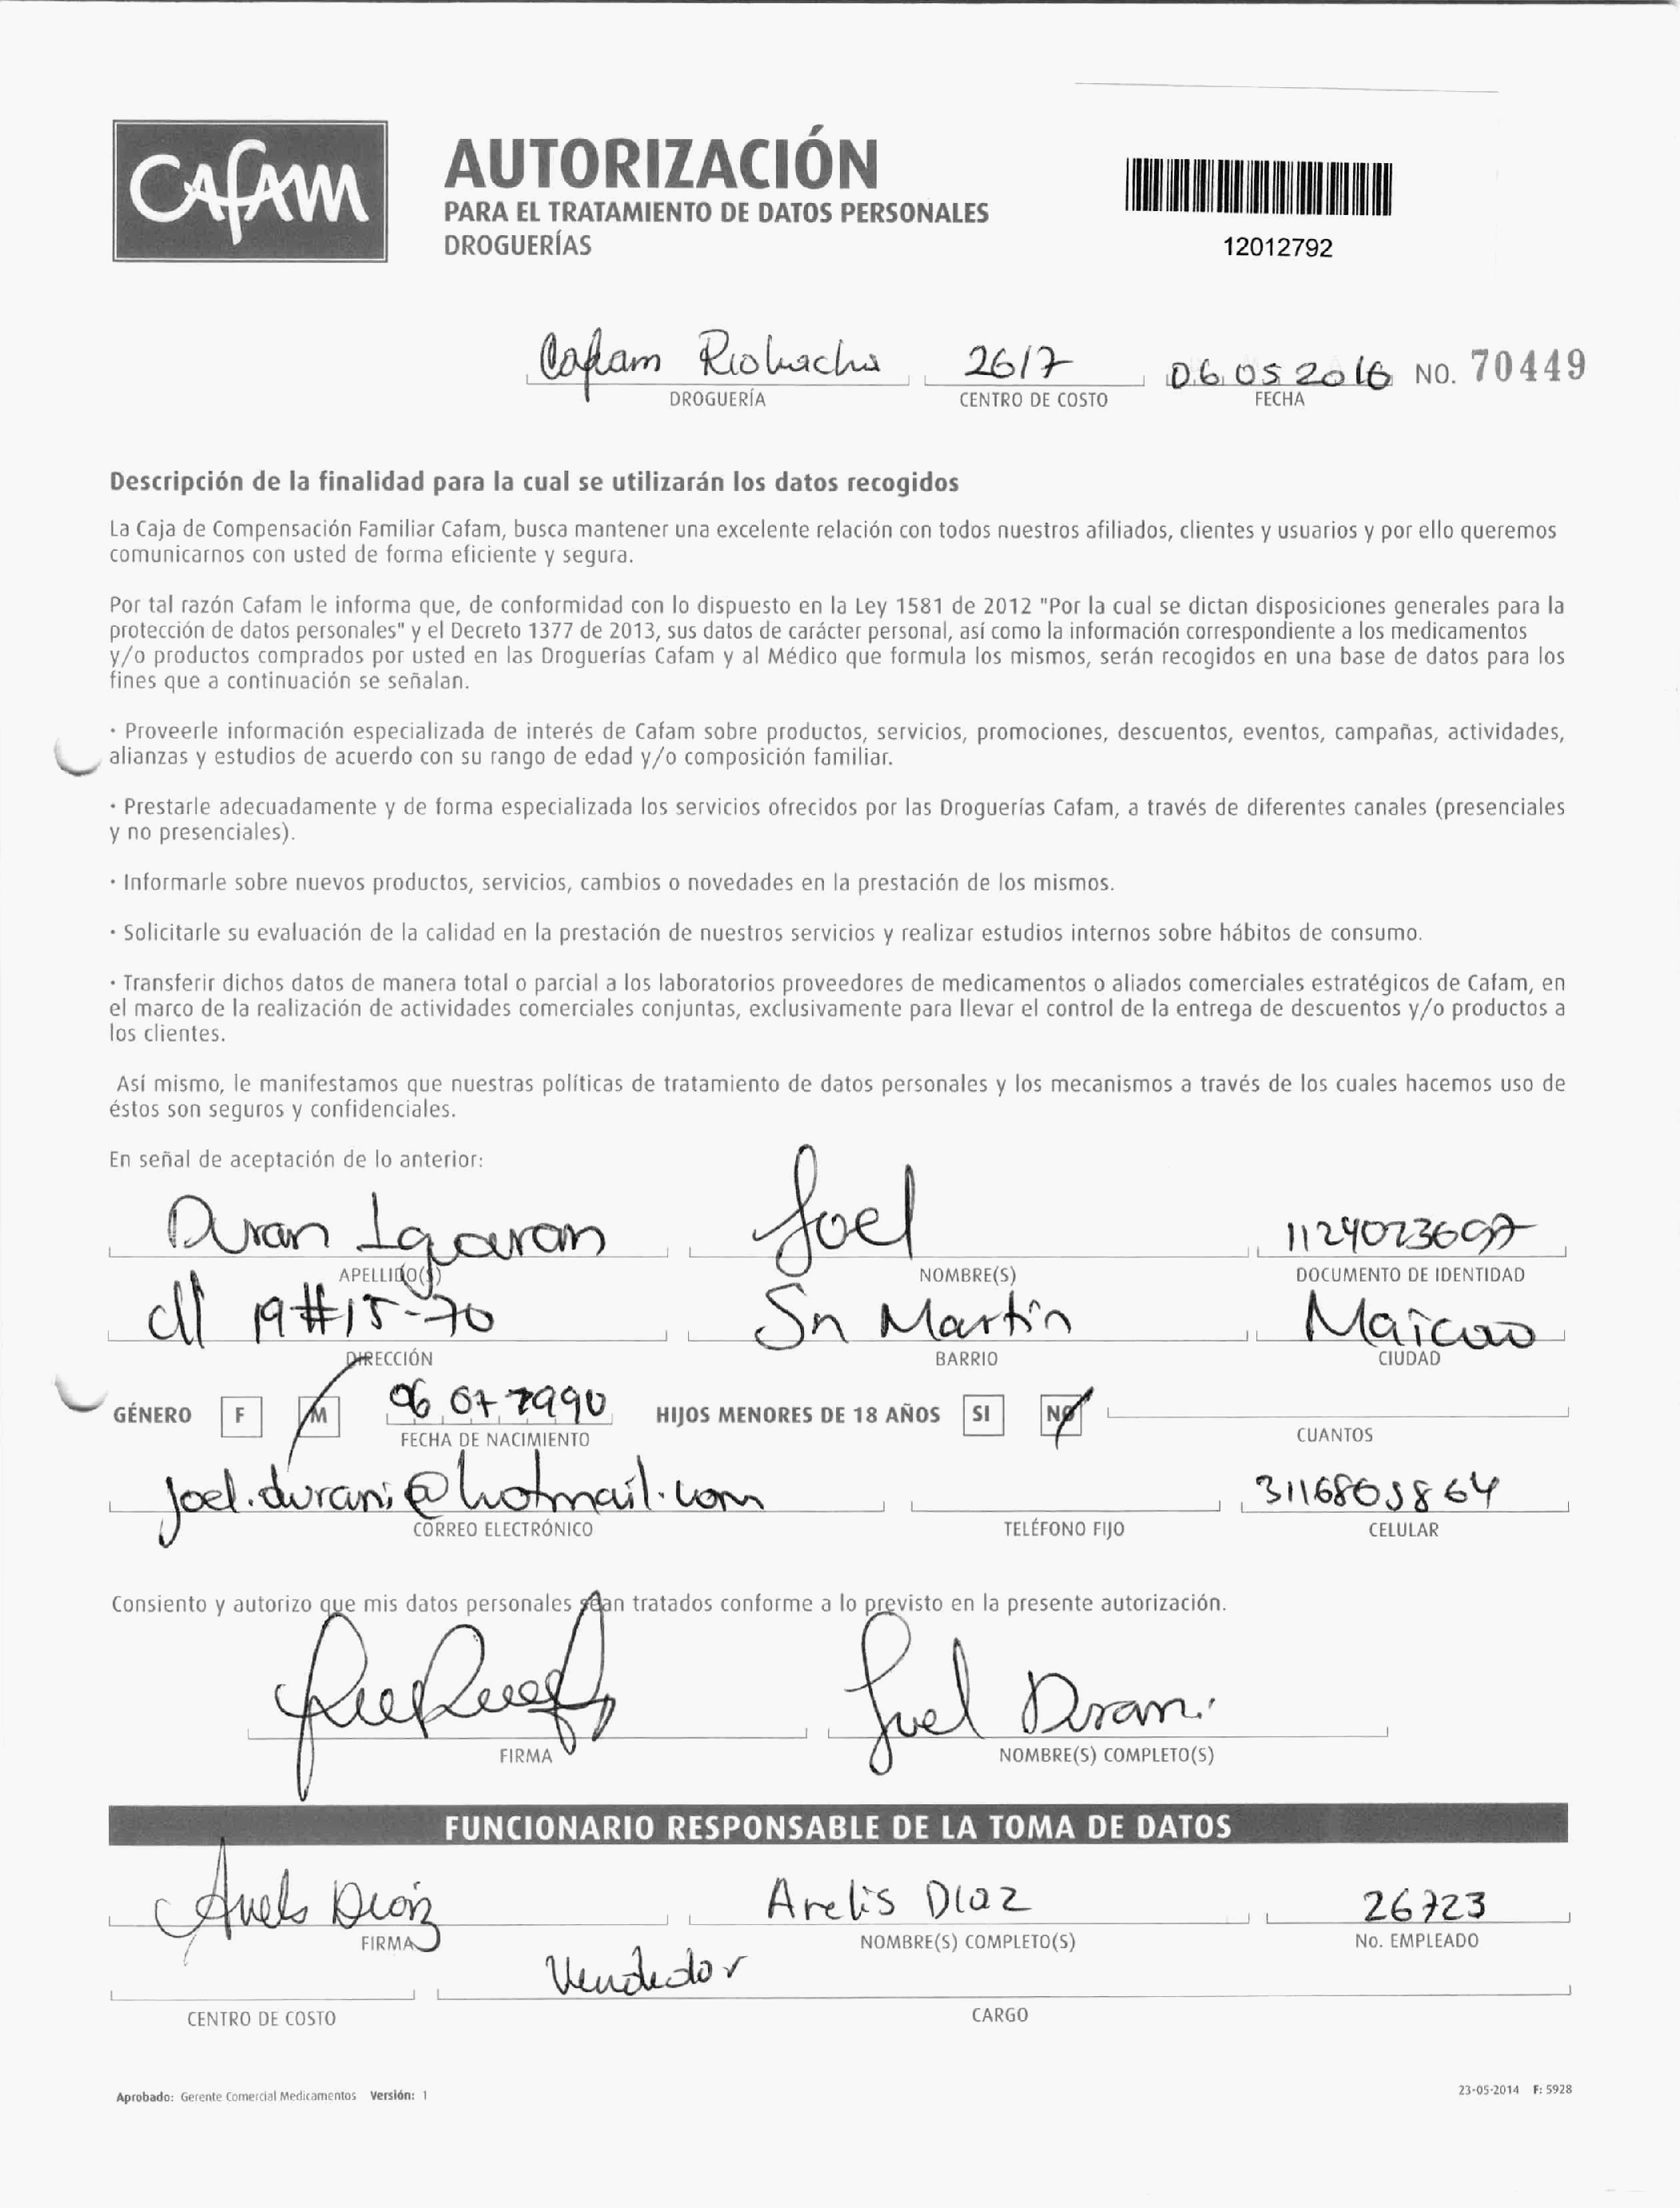 CAFAM
AUTORIZACIÓN
PARA EL TRATAMIENTO DE DATOS PERSONALES
DROGUERÍAS
12012792
Cafam Riohacha 2617 06 05 2016 NO. 70449
DROGUERÍA CENTRO DE COSTO FECHA
Descripción de la finalidad para la cual se utilizarán los datos recogidos
La Caja de Compensación Familiar Cafam, busca mantener una excelente relación con todos nuestros afiliados, clientes y usuarios y por ello queremos
comunicarnos con usted de forma eficiente y segura.
Por tal razón Cafam le informa que, de conformidad con lo dispuesto en la Ley 1581 de 2012 "Por la cual se dictan disposiciones generales para la
protección de datos personales" y el Decreto 1377 de 2013, sus datos de carácter personal, así como la información correspondiente a los medicamentos
y/o productos comprados por usted en las Droguerías Cafam y al Médico que formula los mismos, serán recogidos en una base de datos para los
fines que a continuación se señalan.
· Proveerle información especializada de interés de Cafam sobre productos, servicios, promociones, descuentos, eventos, campañas, actividades,
alianzas y estudios de acuerdo con su rango de edad y/o composición familiar.
· Prestarle adecuadamente y de forma especializada los servicios ofrecidos por las Droguerías Cafam, a través de diferentes canales (presenciales
y no presenciales).
· Informarle sobre nuevos productos, servicios, cambios o novedades en la prestación de los mismos.
· Solicitarle su evaluación de la calidad en la prestación de nuestros servicios y realizar estudios internos sobre hábitos de consumo.
· Transferir dichos datos de manera total o parcial a los laboratorios proveedores de medicamentos o aliados comerciales estratégicos de Cafam, en
el marco de la realización de actividades comerciales conjuntas, exclusivamente para llevar el control de la entrega de descuentos y/o productos a
los clientes.
Así mismo, le manifestamos que nuestras políticas de tratamiento de datos personales y los mecanismos a través de los cuales hacemos uso de
éstos son seguros y confidenciales.
En señal de aceptación de lo anterior:
Duran Iguaran Joel 1124023697
APELLIDO(S) NOMBRE(S) DOCUMENTO DE IDENTIDAD
cll 19#15-70 Sn Martin Maicao
DIRECCIÓN BARRIO CIUDAD
GÉNERO F M 06 07 1990 HIJOS MENORES DE 18 AÑOS SI NO
FECHA DE NACIMIENTO CUANTOS
joel.durani@hotmail.com 3116805864
CORREO ELECTRÓNICO TELÉFONO FIJO CELULAR
Consiento y autorizo que mis datos personales sean tratados conforme a lo previsto en la presente autorización.
Joel Duran i
FIRMA NOMBRE(S) COMPLETO(S)
FUNCIONARIO RESPONSABLE DE LA TOMA DE DATOS
Arelis Diaz Arelis Diaz 26723
FIRMA NOMBRE(S) COMPLETO(S) No. EMPLEADO
Vendedor
CENTRO DE COSTO CARGO
Aprobado: Gerente Comercial Medicamentos Versión: 1 23-05-2014 F: 5928